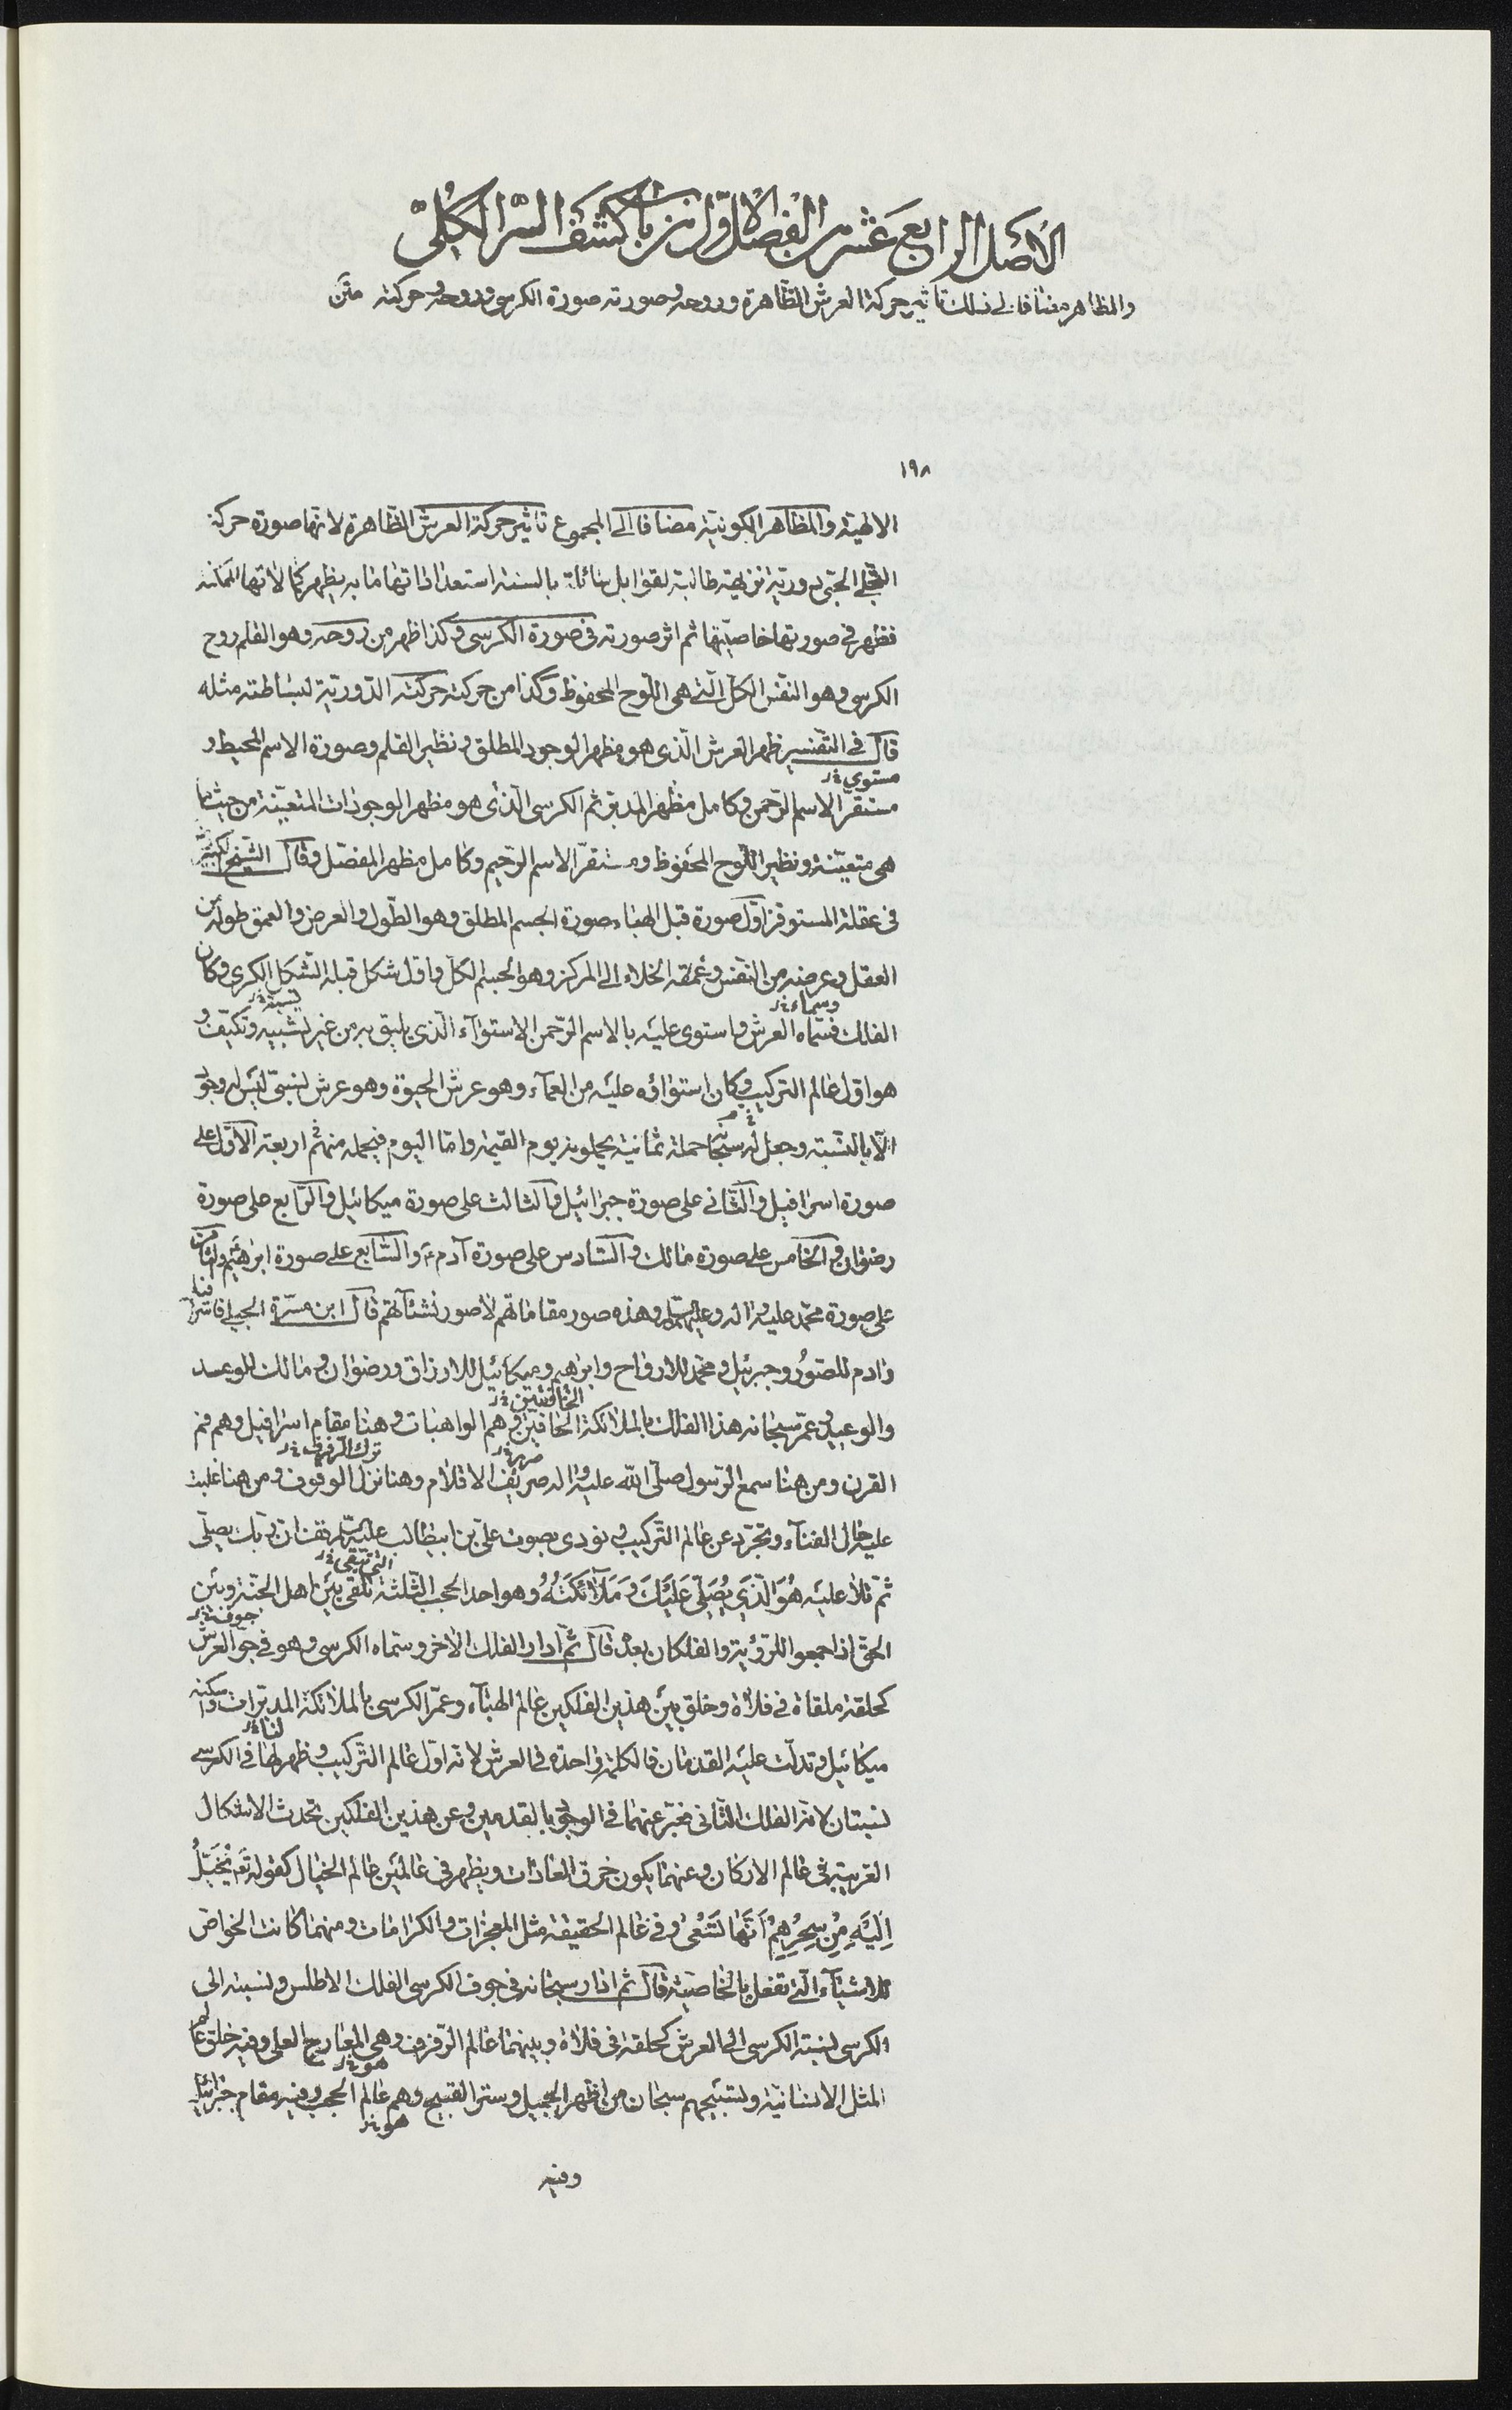 الأصل الرابع عشر من الفصل الأول من باب كشف السر الكلي
والمظاهر مضافا الى ذلك تأثير حركة العرش الظاهرة وروحه وصورته صورة الكرسي وروحه وحركته متن
١٩٨
الالهية والمظاهر الكونية مضافا الى المجموع تأثير حركة العرش الظاهرة لانها صورة حركة
التجلي الحبي دورية نزيهة طالبة لقوابل سائلة بالسنة استعداداتها ما به يظهر كمالاتها الممكنة
فظهر في صورتها خاصيتها ثم اثر صورته في صورة الكرسي وكذا ظهر من روحه وهو القلم روح
الكرسي وهو النفس الكل التي هي اللوح المحفوظ وكذا من حركته حركته الدورية لبساطته مثله
قال في التفسير ظهر العرش الذي هو مظهر الوجود المطلق ونظير القلم وصورة الاسم المحيط و
مستوي خ ر
مستقر الاسم الرحمن وكامل مظهر المدبر ثم الكرسي الذي هو مظهر الموجودات المتعينة من حيث ما
هي متعينة ونظير اللوح المحفوظ ومستقر الاسم الرحيم وكامل مظهر المفصل وقال الشيخ الكبير
في عقلة المستوفز اول صورة قبل الهباء صورة الجسم المطلق وهو الطول والعرض والعمق طوله من
العقل وعرضه من النفس وعمقه الخلاء الى المركز وهو الجسم الكل واول شكل قبله الشكل الكري وكان
وسماه خ ر
الفلك فسماه العرش واستوى عليه بالاسم الرحمن الاستواء الذي يليق به من غير تشبيه وتكيف و
هو اول عالم التركيب وكان استواؤه عليه من العماء وهو عرش الحيوة وهو عرش نسبي ليس له وجود
الا بالنسبة وجعل له سبحانه حملة ثمانية يحملونه يوم القيمة واما اليوم فيحمله منهم اربعة الاول على
صورة اسرافيل والثاني على صورة جبرائيل والثالث على صورة ميكائيل والرابع على صورة
رضوان والخامس على صورة مالك والسادس على صورة آدم ع والسابع على صورة ابرهيم والثامن
على صورة محمد عليه واله وعليهم السلم وهذه صور مقاماتهم لا صور نشآتهم قال ابن مسرة الجبلي فاسرافيل
وادم للصور وجبرئيل ومحمد للارواح وابرهيم وميكائيل للارزاق ورضوان ومالك للوعد
والوعيد وعمر سبحانه هذا الفلك بالملائكة الحافين وهم الواهبات وهنا مقام اسرافيل وهم فم
القرن ومن هنا سمع الرسول صلى الله عليه واله صريف الاقلام وهنا نزل الوقوف ومن هنا غلبت
عليه حال الفناء وتجرد عن عالم التركيب ونودي بصوت علي بن ابيطالب عليه السلم قف ان ربك يصلي
ثم تلا عليه هُوَ الَّذِي يُصَلِّي عَلَيْكَ وَمَلَائِكَتُهُ وهو احد الحجب الثلثة تلقى بين اهل الجنة وبين
جوف خ ر
الحق اذا جمعوا للرؤية والفلكان بعد قال ثم ادار الفلك الاخر وسماه الكرسي وهو في جو العرش
كحلقة ملقاة في فلاة وخلق بين هذين الفلكين عالم الهباء وعمر الكرسي بالملائكة المدبرات واسكنه
ميكائيل وتدلت عليه القدمان فالكلمة واحدة في العرش لانه اول عالم التركيب وظهر لها في الكرسي
نسبتان لانه الفلك الثاني فخبر عنهما في الوحي بالقدمين وعن هذين الفلكين تحدث الاشكال
الغريبة في عالم الاركان وعنهما يكون خرق العادات ويظهر في عالمين عالم الخيال كقوله تعم يُخَيَّلُ
اِلَيْهِ مِنْ سِحْرِهِمْ اَنَّهَا تَسْعَى وفي عالم الحقيقة مثل المعجزات والكرامات ومنهما كانت الخواص
للاشياء التي تفعل بالخاصية قال ثم ادار سبحانه في جوف الكرسي الفلك الاطلس ونسبته الى
الكرسي نسبة الكرسي الى العرش كحلقة في فلاة وبينهما عالم الرفرف وهي المعارج العلى وفيه خلق عالم
هو خ ر
المثل الانسانية وتسبيحهم سبحان من اظهر الجميل وستر القبيح وهم عالم الحجب وفيه مقام جبرائيل
هو خ ر
وفيه